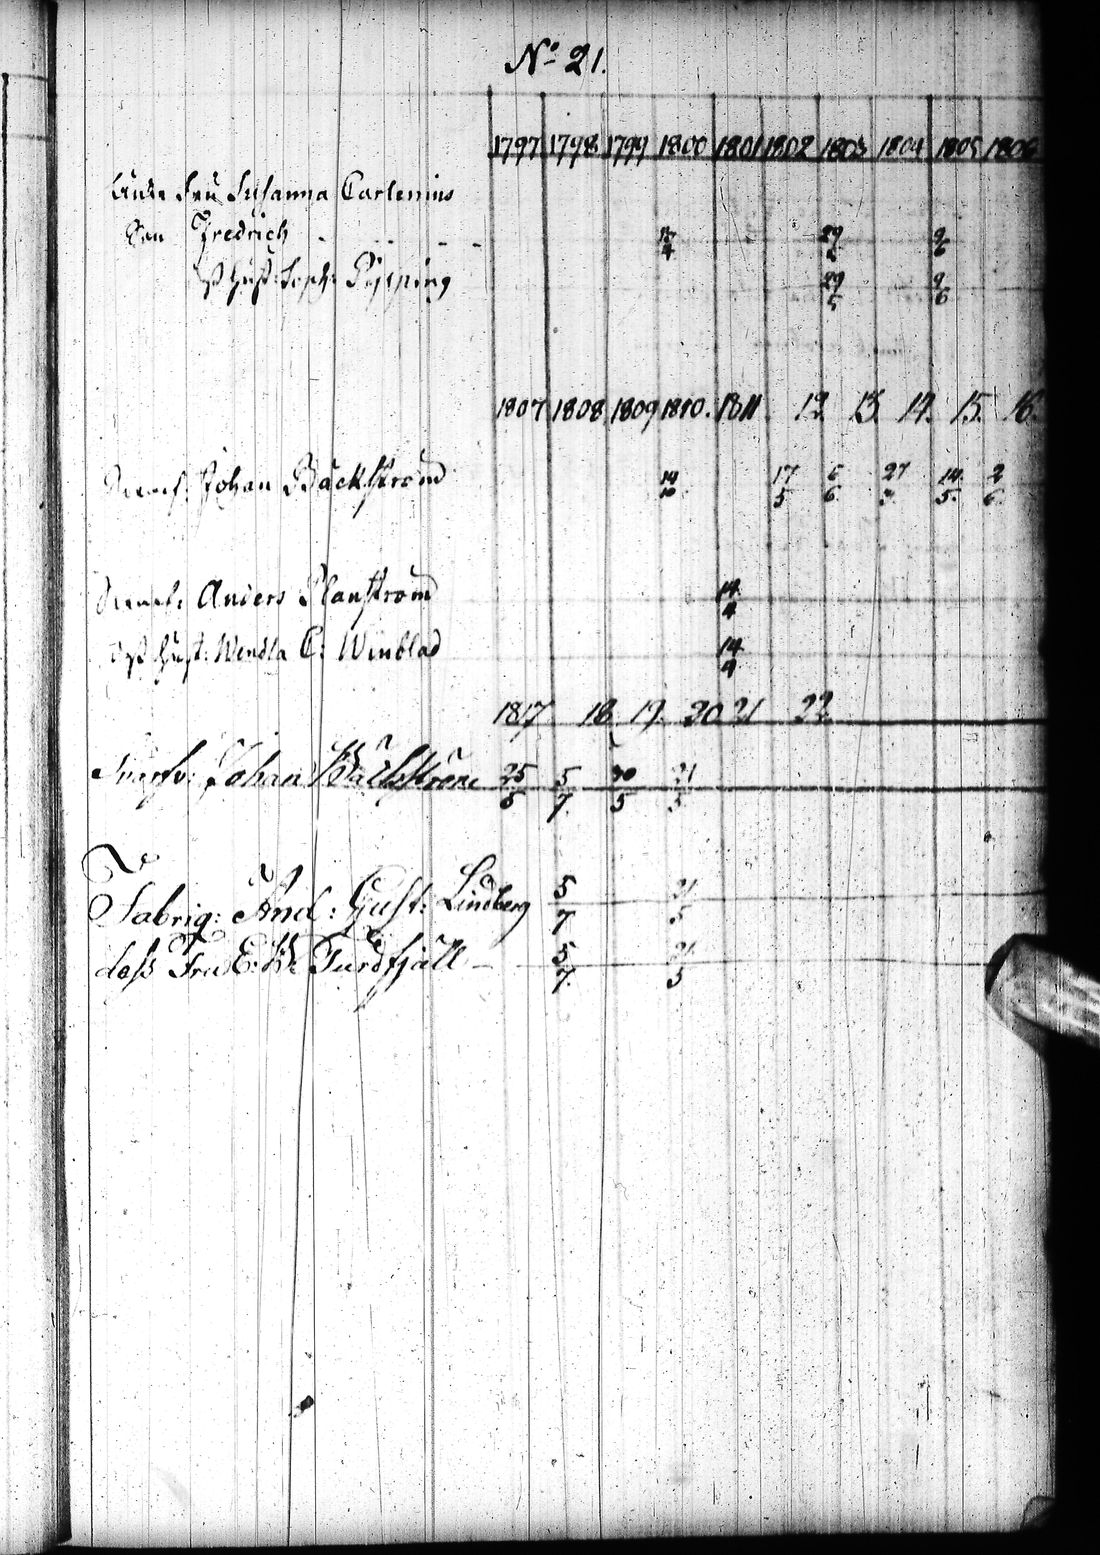 No 21.
1797 1798 1799 1800 1801 1802 1803 1804 1805 1806
Enke Fru Susanna Carlenius
Son Fredrich 29 9 6
Hust: Soph: Pipping 29 5 9 6
1807 1808 1809 1810. 1811 12. 13. 14. 15. 16.
Johan Bäckström 14 10 17 5 6 6 27 14 5. 2 6.
Anders Planström 14 4
Hust: Wendla C: Winblad 14 4
1817 18. 19. 20 21 22
Johan Bäckström 25 5 7. 30 5 21 5
Fabriq: And: Gust: Lindberg 5 7 21 5
dess Fru E: 5 7. 21 5